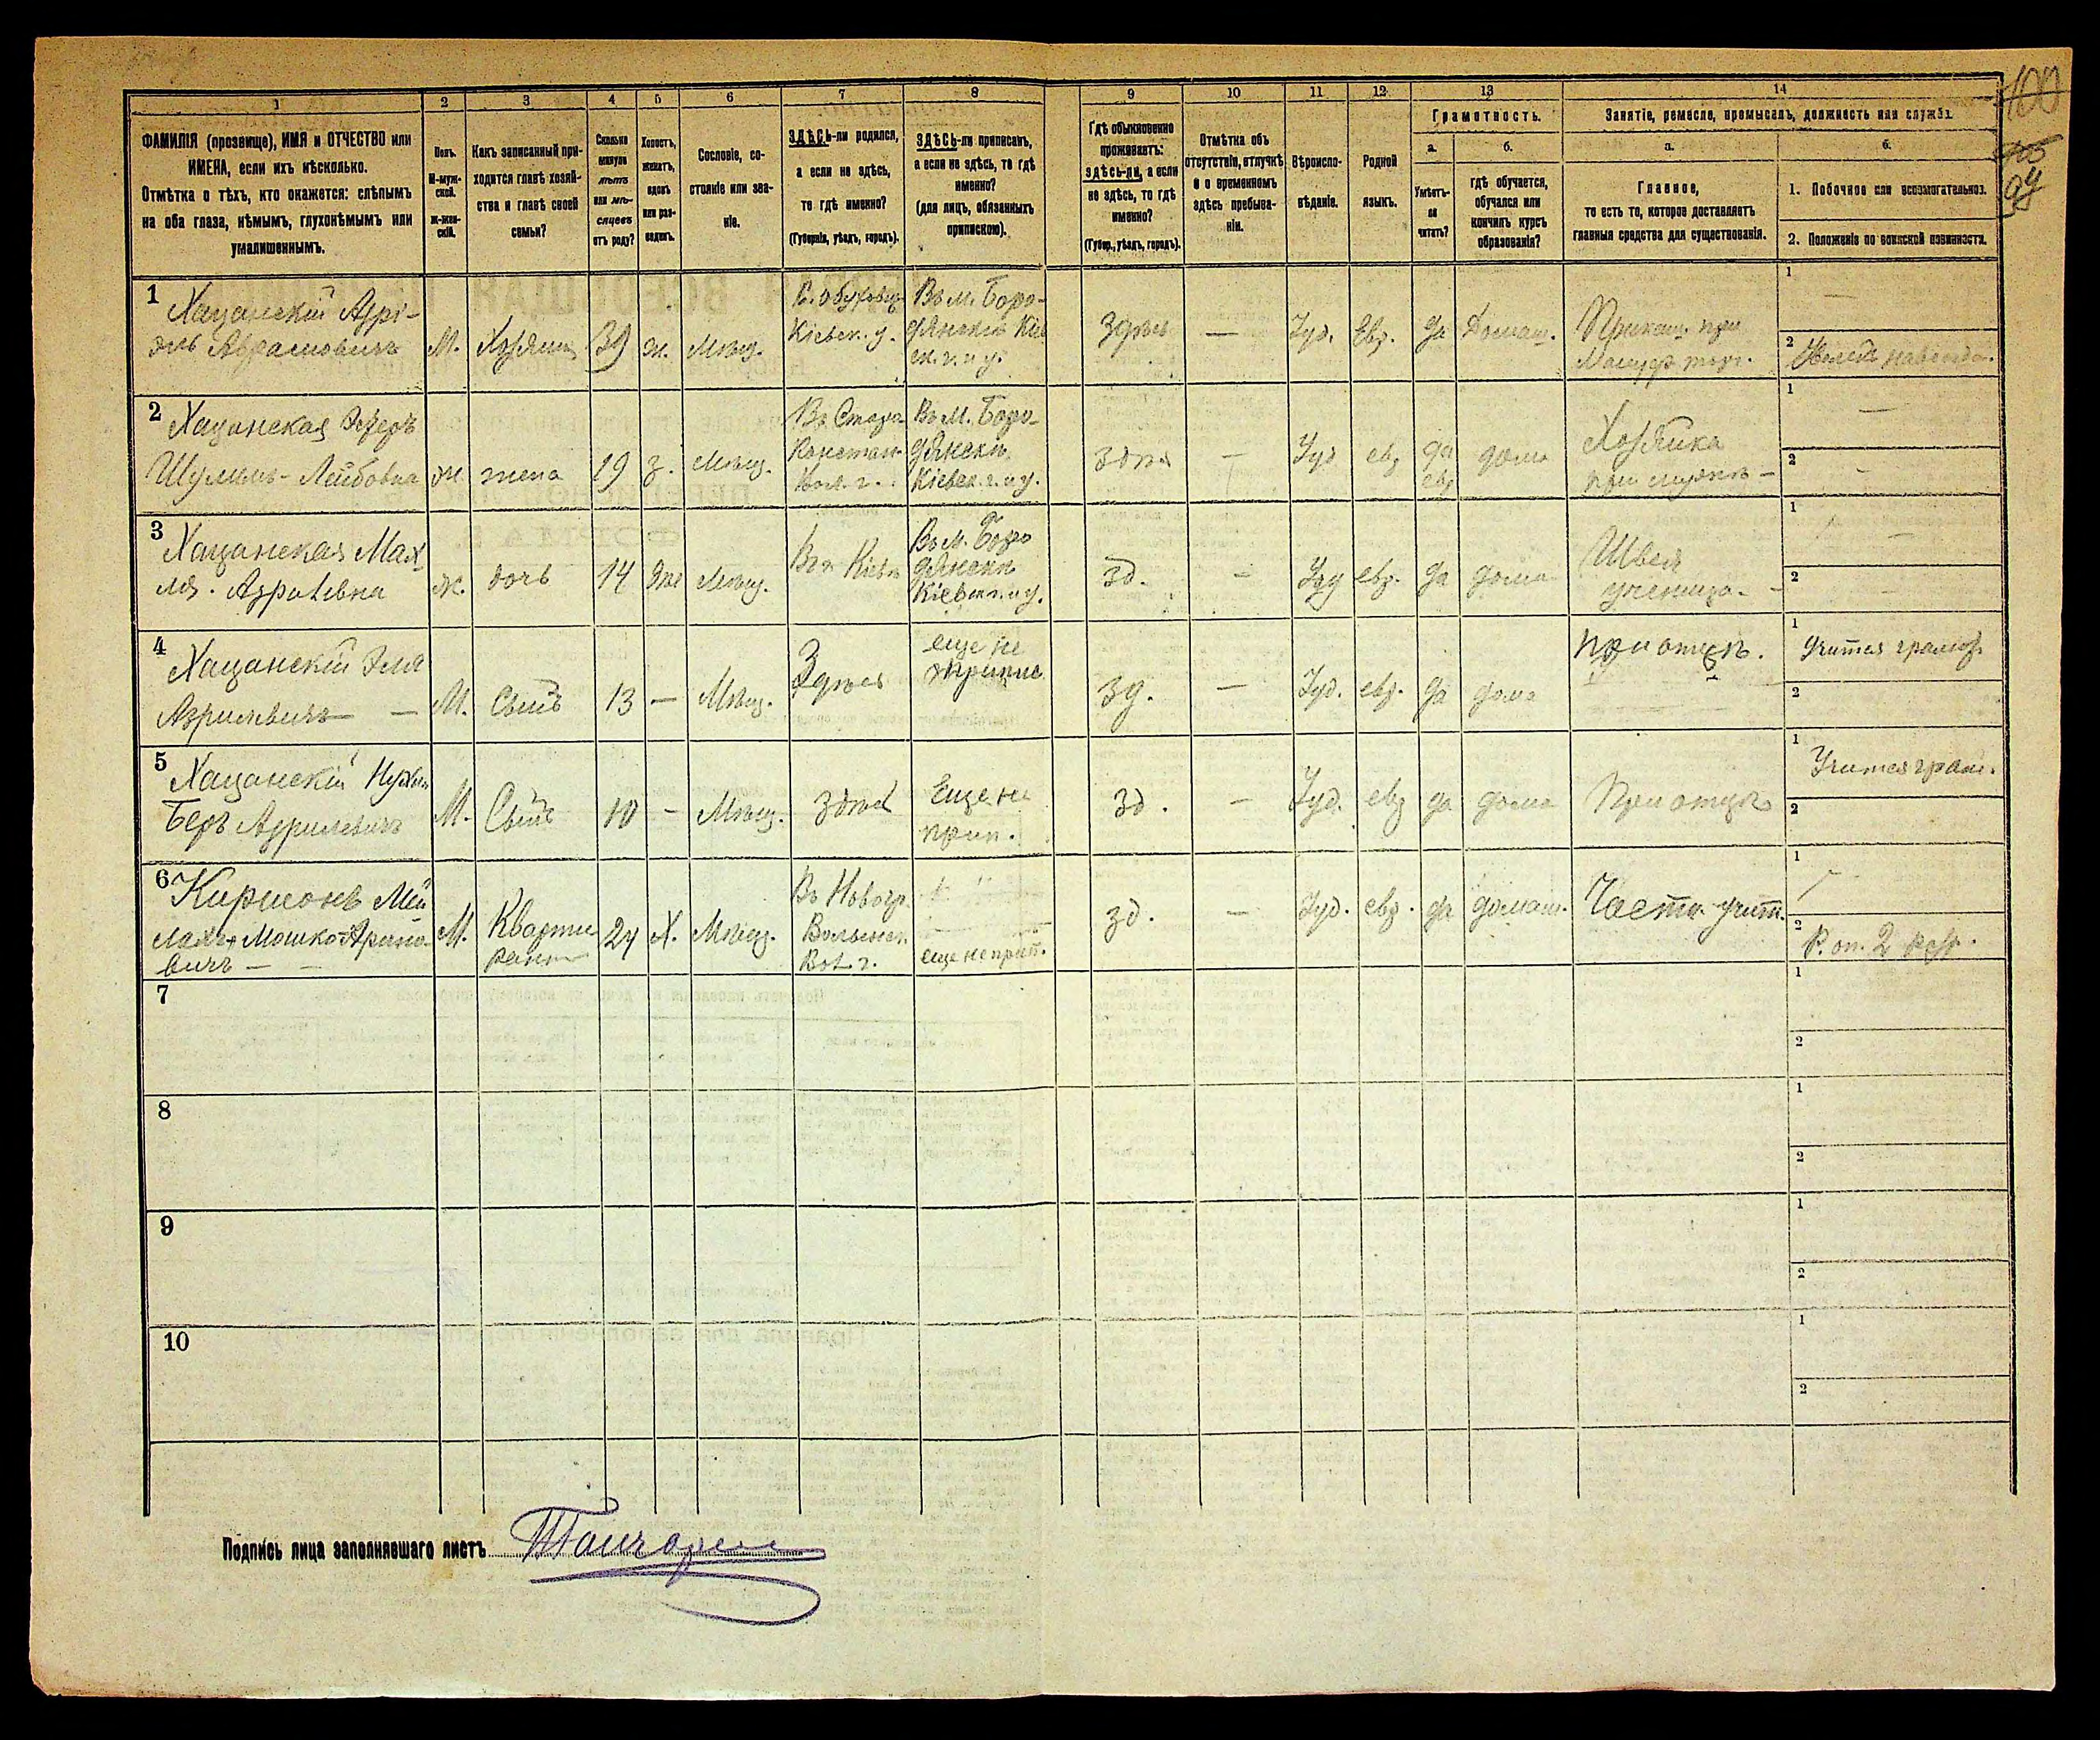 100
105
94
1
2
3
4
5
6
7
8
9
10
11
12
13
14
ФАМИЛІЯ (прозвище), ИМЯ и ОТЧЕСТВО или
ИМЕНА, если ихъ нѣсколько.
Отмѣтка о тѣхъ, кто окажется: слѣпымъ
на оба глаза, нѣмымъ, глухонѣмымъ или
умалишеннымъ.
Полъ.
М-муж-
ской.
Ж-жен-
скій.
Какъ записанный при-
ходится главѣ хозяй-
ства и главѣ своей
семьи?
Сколько
минуло
лѣтъ
или мѣ-
сяцевъ
отъ роду?
Холостъ,
женатъ,
вдовъ
или раз-
веденъ.
Сословіе, со-
стояніе или зва-
ніе.
ЗДѢСЬ-ли родился,
а если не здѣсь,
то гдѣ именно?
(Губернія, уѣздъ, городъ).
ЗДѢСЬ-ли приписанъ,
а если не здѣсь, то гдѣ
именно?
(для лицъ, обязанныхъ
припискою).
Гдѣ обыкновенно
проживаетъ:
здѣсь-ли, а если
не здѣсь, то гдѣ
именно?
(Губер., уѣздъ, городъ).
Отмѣтка объ
отсутствіи, отлучкѣ
и о временномъ
здѣсь пребыва-
ніи.
Вѣроиспо-
вѣданіе.
Родной
языкъ.
Грамотность.
а.
Умѣетъ-
ли
читать?
б.
гдѣ обучается,
обучался или
кончилъ курсъ
образованія?
Занятіе, ремесло, промыселъ, должность или служба.
а.
Главное,
то есть то, которое доставляетъ
главныя средства для существованія.
б.
1. Побочное или вспомогательное.
2. Положеніе по воинской повинности.
1
Хацанскій Азрі-
эль Абрамовичъ
М.
Хозяинъ
39
ж.
Мѣщ.
Кіевск. у.
Въ м. Боро-
дянскій Кіе
ск. г. и у.
Здѣсь
—
Іуд.
Евр.
да
Домаш.
Приказ. при
Мануф. торг.
1
—
2
навсегда.
2
Хацанская Эстеръ
Шулимъ-Лейбовна
ж.
жена
19
з.
Мѣщ.
Въ Старо-
Констан.
Вол. г.
Въ м. Боро-
дянски
Кіевск. г. и у.
здѣсь
—
Іуд
евр
да
евр
дома
Хозяйка
при мужѣ —
1
—
2
—
3
Хацанская Мах
ля. Азріевна
ж.
дочь
14
Мѣщ.
Въ г. Кіевѣ
Въ м. Боро
дянски
Кіевск. г. и у.
зд.
—
Іуд
евр.
да
дома
Швея
ученица.
1
—
2
—
4
Хацанскій Эля
Азрилевичъ —
М.
Сынъ
13
—
Мѣщ.
Здѣсь
еще не
припис
зд.
—
Іуд.
евр.
да
дома
при отцѣ.
1
Учится грамот.
2
5
Хацанскій Нухим
Беръ Азрилевичъ
М.
Сынъ
10
—
Мѣщ.
здѣсь
Еще не
прип.
зд.
—
Іуд.
евр
да
дома
При отцѣ
1
Учится грам.
2
6
Киржонъ Мей
лахъ Мошко-Ароно-
вичъ — —
М.
Кварти
рантъ
24
Х.
Мѣщ.
Въ Новогр.
Волынск.
Вол. г.
еще не прип.
зд.
—
Іуд.
евр.
да
домаш.
Частн. учит.
1
2
Р. оп. 2 разр.
7
1
2
8
1
2
9
1
2
10
1
2
Подпись лица заполнявшаго листъ